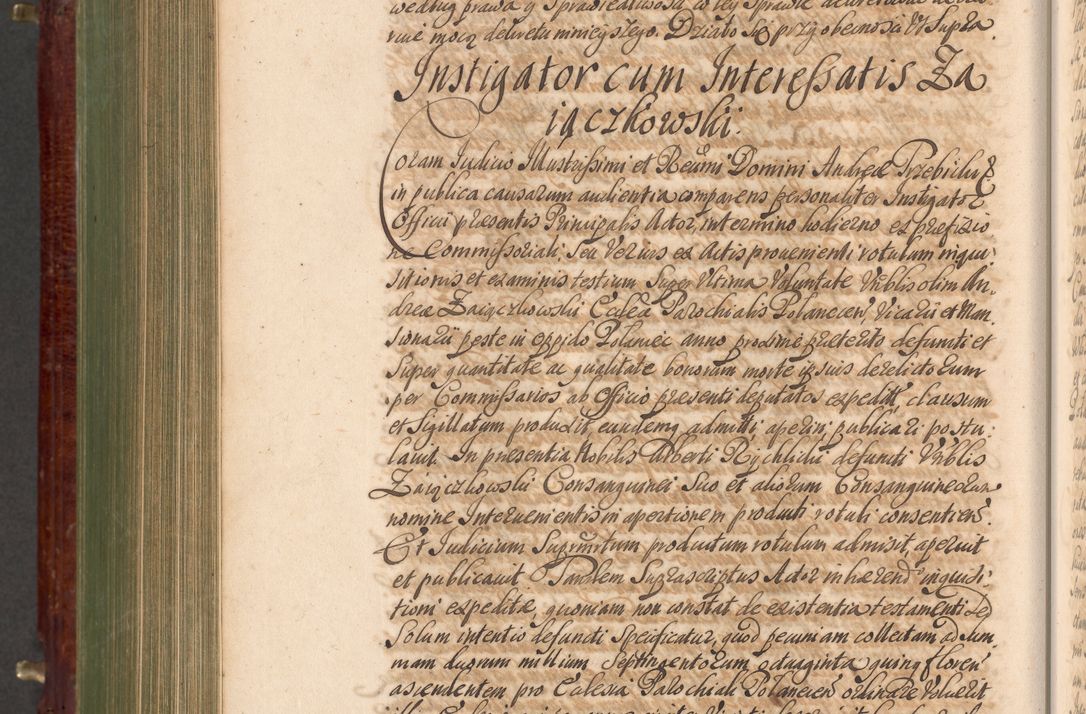 według prawa y Sprawiedliwosci w tey Sprawie
mocą dekretu ninieyszego. Działo Się przy obecnosci Ut Supra.
Instigator cum Interessatis Za
iączkowskii.
Coram Iudicio Illustrissimi et Reverendissimi Domini Andreæ Trzebicki
in publica causarum audientia comparens personaliter Instigator
Officii præsentis Principalis Actor, in termino hodierno ex præfixio
ne Commissoriali, Seu Verius ex Actis provenienti rotulum inqui
sitionis et examinis testium Super Ultima Voluntate Vrblis olim An.
dreæ Zaiączkowskii Ecclesiæ Parochialis Polanecen Vicarii et Man
sionarii peste in oppido Polaniec anno proxime præterito defuncti et
Super quantitate ac qualitate bonorum morte ipsius derelictorum
per Commissarios ab Officio præsenti deputatos expedit, clausum
et Sigillatum produxit, eundemq admitti, aperiri, publicari postu
lavit. In præsentia Nobilis Alberti Rychlicki defuncti Vrblis
Zaiączkowskii Consanguinei Suo et aliorum Consanguineorum
nomine Intervenientis in apertionem producti rotuli consentiens.
Et Iudicium Suprascriptum productum rotulum admisit, aperuit
et publicavit. Tandem Suprascriptus Actor inhærend inquisi
tioni expeditæ, quoniam non constat de existentia testamenti Sed
Solum intentio defuncti Specificatur, quod pecuniam collectam ad Sum
mam duorum millium Septingentorum octuaginta quinq floren
ascendentem pro Ecclesia Parochiali Polanecen ordinare Voluerit